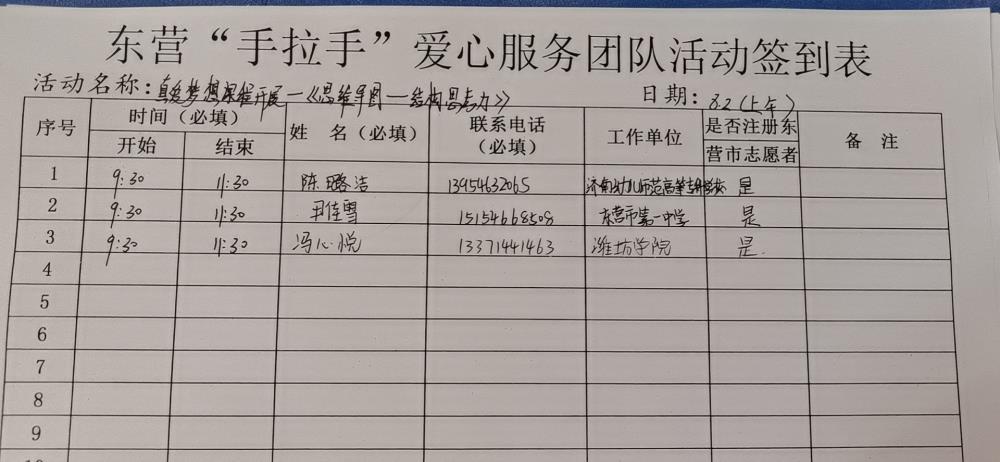 东营“手拉手”爱心服务团队活动签到表
活动名称：真爱梦想课程开展—《思维导图—结构思考力》 日期：8.2（上午）
序号 时间（必填） 姓 名（必填） 联系电话（必填） 工作单位 是否注册东营市志愿者 备 注
开始 结束
1 9:30 11:30 陈璐洁 13954632065 济南幼儿师范高等专科学校 是
2 9:30 11:30 尹佳雪 15154668508 东营市第一中学 是
3 9:30 11:30 冯心悦 13371441463 潍坊学院 是
4
5
6
7
8
9
10